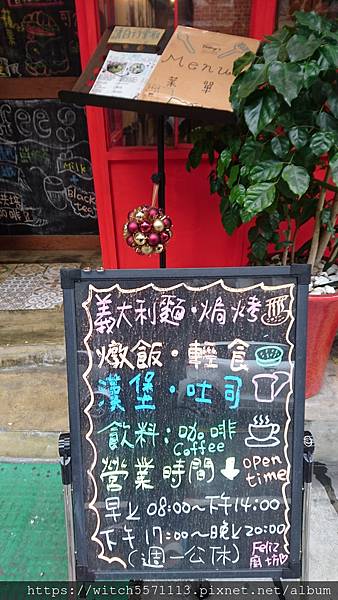 Menu
菜單
Milk
Black tea
義大利麵·焗烤
燉飯·輕食
漢堡·吐司
飲料:咖啡
Coffee
營業時間↓open time
早上08:00~下午14:00
下午17:00~晚上20:00
(週一公休)
Feliz
https://witch5571113.pixnet.net/album